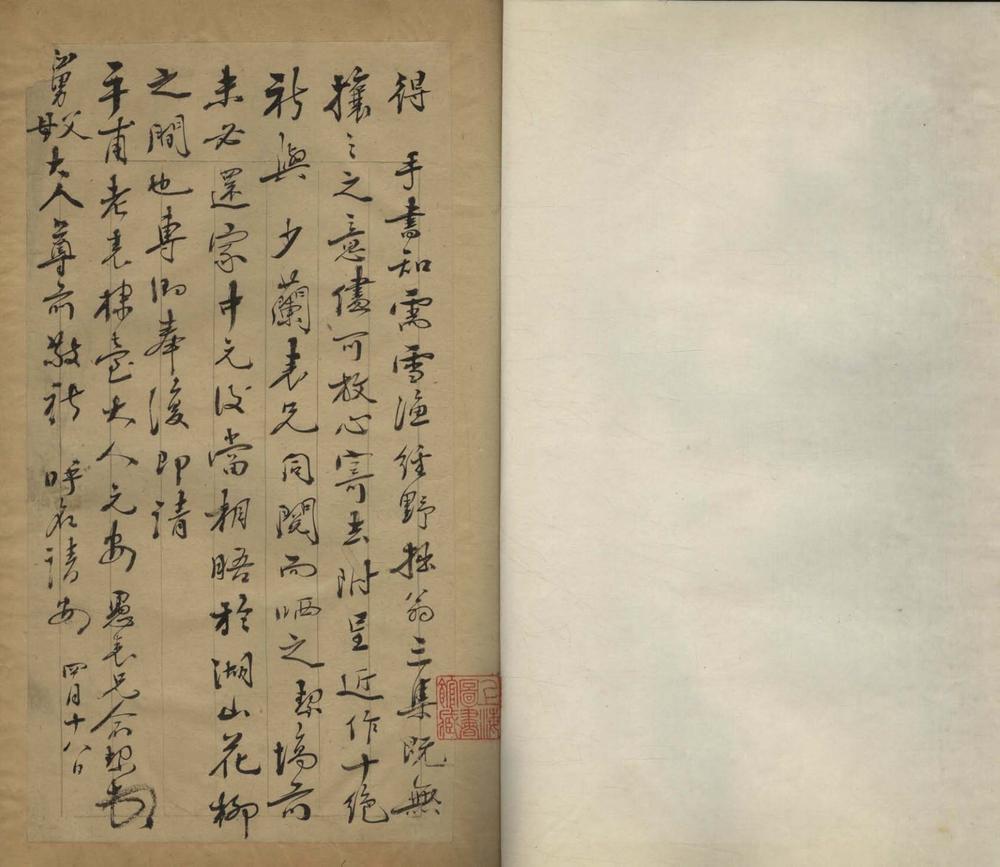 得 手書知需雪漁經野拙翁三集既無
攘之之意儘可放心寄去附呈近作十絕
祈與 少蘭表兄同閱而哂之 墀前
未必還家中元後當相晤於湖山花柳
之間也專泐奉復即請
平甫老表棣臺大人元安 愚表兄 書
舅父母大人尊前敬祈 呼名請安 四月十八日
上海圖書館藏